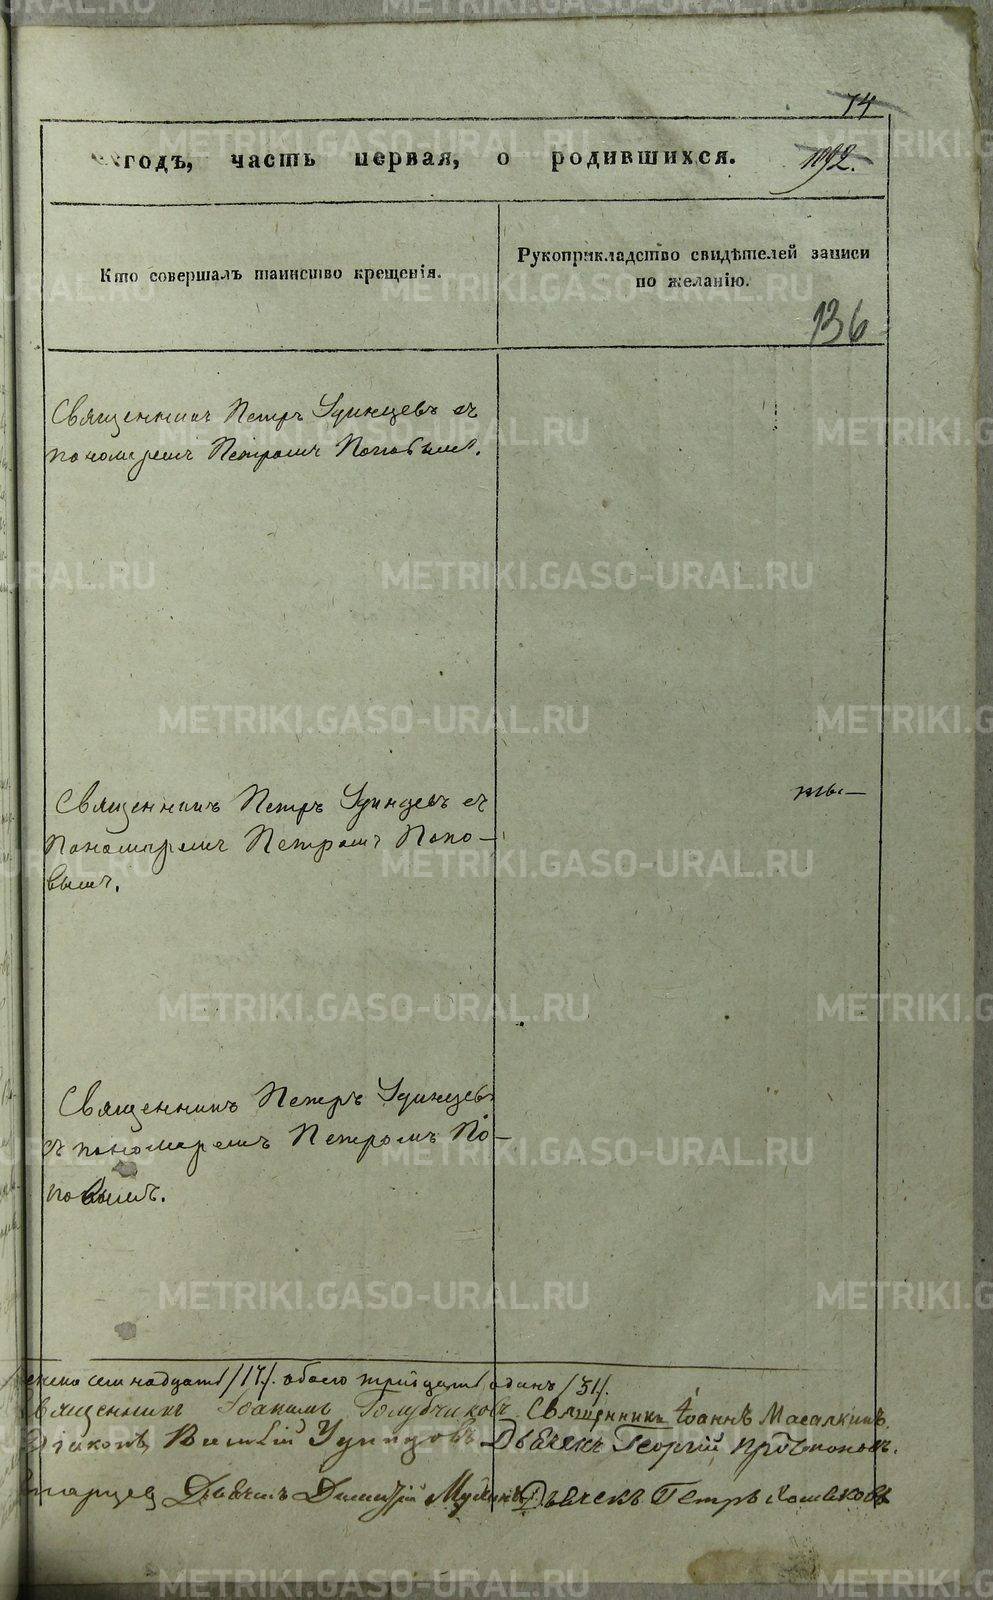 74
годъ, часть первая, о родившихся. 1092.
Кто совершалъ таинство крещенія.
Рукоприкладство свидѣтелей записи
по желанію.
136
Священникъ Петръ Удинцевъ съ
пономаремъ Петромъ Поповымъ.
Священникъ Петръ Удинцевъ съ
Пономаремъ Петромъ Попо-
вымъ.
Священникъ Петръ Удинцевъ
съ пономаремъ Петромъ По-
повымъ.
семнадцать /17/. обоего тридцать одинъ /31/.
Священникъ Іоакимъ Голубчиковъ Священникъ Іоаннъ Масалкинъ
Діаконъ Василій Удинцовъ Дьячекъ Георгій
Дьячекъ Петръ
METRIKI.GASO-URAL.RU